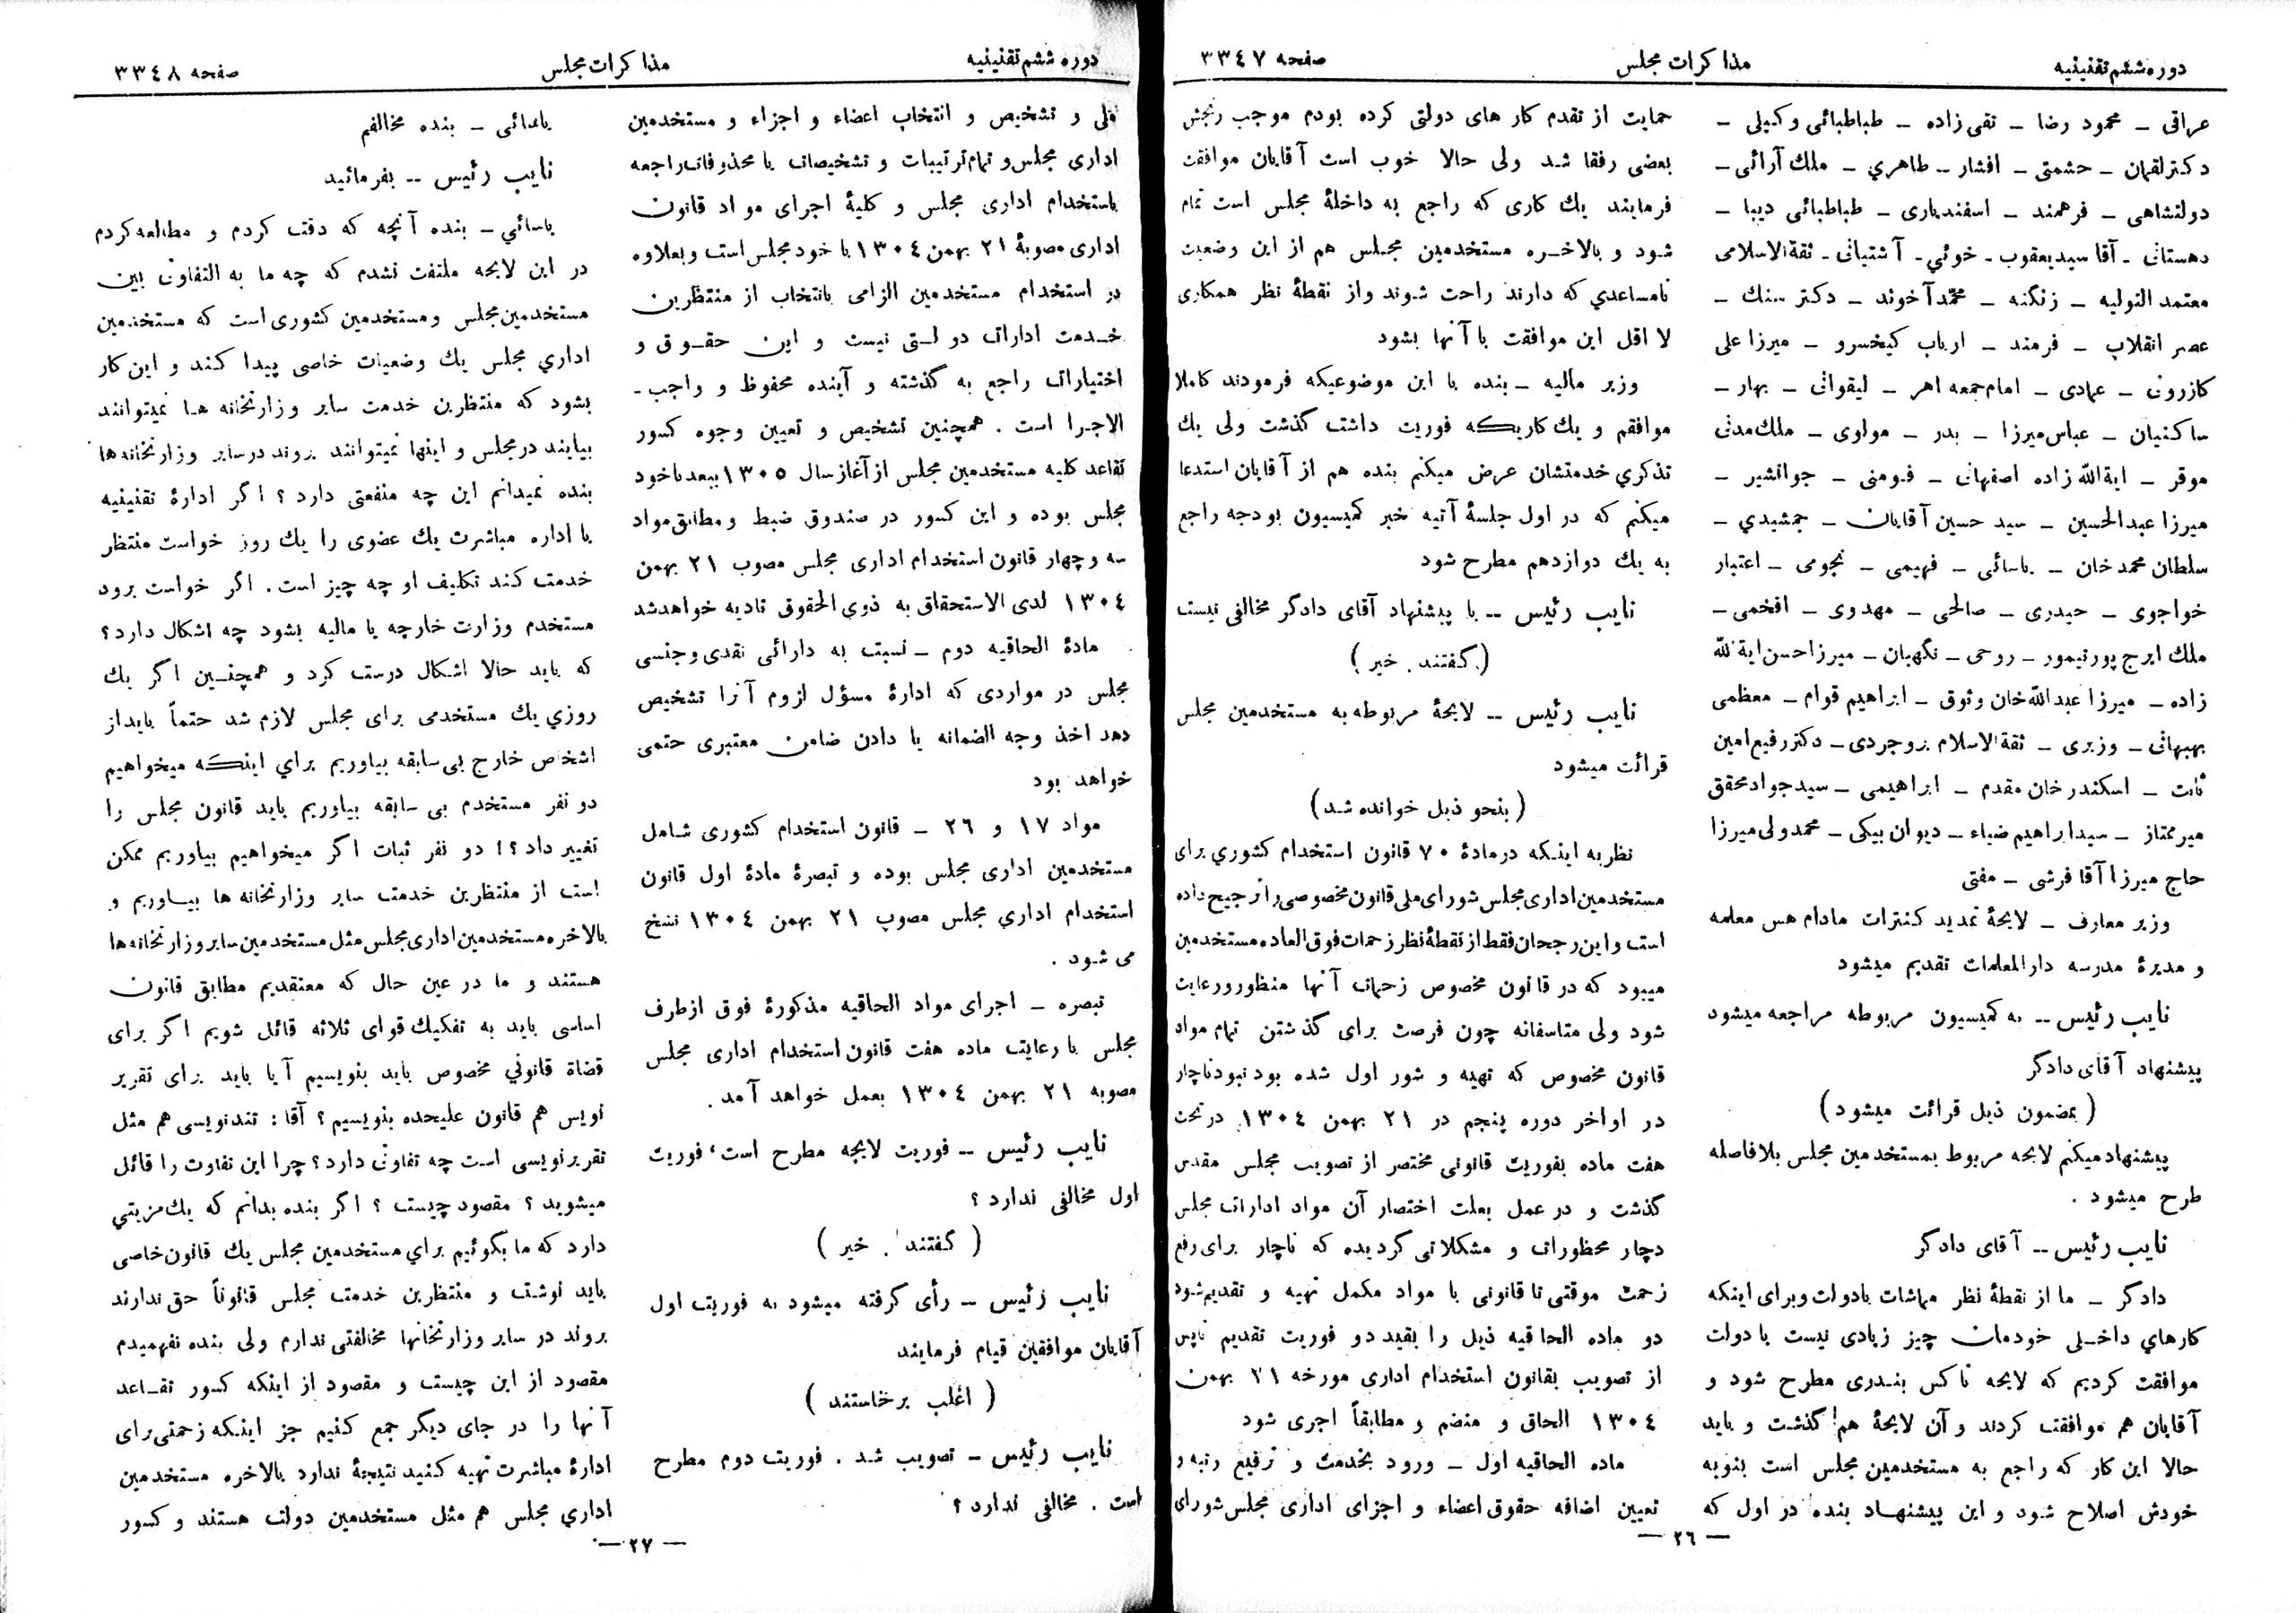 دوره ششم تقنینیه
مذاکرات مجلس
صفحه ۳۳٤۷
عراقی ـ محمود رضا ـ تقی زاده ـ طباطبائی وکیلی ـ
دکتر لقمان ـ حشمتی ـ افشار ـ طاهري ـ ملك آرائی ـ
دولتشاهی ـ فرهمند ـ اسفندیاری ـ طباطبائی دیبا ـ
دهستانی ـ آقا سید یعقوب ـ خوئي ـ آشتیانی ـ ثقة الاسلامی
معتمد التولیه ـ زنگنه ـ محمد آخوند ـ دکتر سنك ـ
عصر انقلاب ـ فرمند ـ ارباب کیخسرو ـ میرزا علی
کازرونی ـ عمادی ـ امام جمعه اهر ـ لیقوانی ـ بهار ـ
ساکنیان ـ عباس میرزا ـ بدر ـ مولوی ـ ملك مدنی
موقر ـ ایة الله زاده اصفهانی ـ فومنی ـ جوانشیر ـ
میرزا عبدالحسین ـ سید حسین آقایان ـ جمشیدي ـ
سلطان محمد خان ـ یاسائی ـ فهیمی ـ نجومی ـ اعتبار
خواجوی ـ حیدری ـ صالحی ـ مهدوی ـ افخمی ـ
ملك ایرج پور تیمور ـ روحی ـ نگهبان ـ میرزا حسن ایة الله
زاده ـ میرزا عبدالله خان وثوق ـ ابراهیم قوام ـ معظمی
بهبهانی ـ وزیری ـ ثقة الاسلام بروجردی ـ دکتر رفیع امین
ثابت ـ اسکندر خان مقدم ـ ابراهیمی ـ سید جواد محقق
میر ممتاز ـ سید ابراهیم ضیاء ـ دیوان بیکی ـ محمد ولی میرزا
حاج میرزا آقا فرشی ـ مفتی
وزیر معارف ـ لایحهٔ تمدید کنترات مادام هس معلمه
و مدیرهٔ مدرسه دارالمعلمات تقدیم میشود
نایب رئیس ـ به کمیسیون مربوطه مراجعه میشود
پیشنهاد آقای دادگر
( بمضمون ذیل قرائت میشود )
پیشنهاد میکنم لایحه مربوط بمستخدمین مجلس بلافاصله
طرح میشود .
نایب رئیس ـ آقای دادگر
دادگر ـ ما از نقطهٔ نظر مماشات با دولت و برای اینکه
کارهاي داخلی خودمان چیز زیادی نیست با دولت
موافقت کردیم که لایحه تاکس بندری مطرح شود و
آقایان هم موافقت کردند و آن لایحهٔ هم گذشت و باید
حالا این کار که راجع به مستخدمین مجلس است بنوبه
خودش اصلاح شود و این پیشنهاد بنده در اول که
حمایت از تقدم کار های دولتی کرده بودم موجب رنجش
بعضی رفقا شد ولی حالا خوب است آقایان موافقت
فرمایند یك کاری که راجع به داخلهٔ مجلس است تمام
شود و بالاخره مستخدمین مجلس هم از این وضعیت
نامساعدي که دارند راحت شوند و از نقطهٔ نظر همکاری
لا اقل این موافقت با آنها بشود
وزیر مالیه ـ بنده با این موضوعیکه فرمودند کاملا
موافقم و یك کاریکه فوریت داشت گذشت ولی یك
تذکري خدمتشان عرض میکنم بنده هم از آقایان استدعا
میکنم که در اول جلسهٔ آتیه خبر کمیسیون بودجه راجع
به یك دوازدهم مطرح شود
نایب رئیس ـ با پیشنهاد آقای دادگر مخالفی نیست
( گفتند . خیر )
نایب رئیس ـ لایحهٔ مربوطه به مستخدمین مجلس
قرائت میشود
( بنحو ذیل خوانده شد )
نظر به اینکه در مادهٔ ۷۰ قانون استخدام کشوري برای
مستخدمین اداری مجلس شورای ملی قانون مخصوصی را ترجیح داده
است و این رجحان فقط از نقطهٔ نظر زحمات فوق العاده مستخدمین
میبود که در قانون مخصوص زحمات آنها منظور و رعایت
شود ولی متاسفانه چون فرصت برای گذشتن تمام مواد
قانون مخصوص که تهیه و شور اول شده بود نبود ناچار
در اواخر دوره پنجم در ۲۱ بهمن ۱۳۰٤ در تحت
هفت ماده بفوریت قانونی مختصر از تصویب مجلس مقدس
گذشت و در عمل بعلت اختصار آن مواد ادارات مجلس
دچار محظورات و مشکلاتی گردیده که ناچار برای رفع
زحمت موقتی تا قانونی با مواد مکمل تهیه و تقدیم شود
دو ماده الحاقیه ذیل را بقید دو فوریت تقدیم تا پس
از تصویب بقانون استخدام اداری مورخه ۲۱ بهمن
۱۳۰٤ الحاق و منضم و مطابقاً اجری شود
ماده الحاقیه اول ـ ورود بخدمت و ترفیع رتبه و
تعیین اضافه حقوق اعضاء و اجزای اداری مجلس شورای
ـ ۲٦ ـ
دوره ششم تقنینیه
مذاکرات مجلس
صفحه ۳۳٤۸
ملی و تشخیص و انتخاب اعضاء و اجزاء و مستخدمین
اداری مجلس و تمام ترتیبات و تشخیصات یا محذوفات راجعه
باستخدام اداری مجلس و کلیهٔ اجرای مواد قانون
اداری مصوبهٔ ۲۱ بهمن ۱۳۰٤ با خود مجلس است و بعلاوه
در استخدام مستخدمین الزامی بانتخاب از منتظرین
خدمت ادارات دولتی نیست و این حقوق و
اختیارات راجع به گذشته و آینده محفوظ و واجب ـ
الاجرا است . همچنین تشخیص و تعیین وجوه کسور
تقاعد کلیه مستخدمین مجلس از آغاز سال ۱۳۰٥ ببعد با خود
مجلس بوده و این کسور در صندوق ضبط و مطابق مواد
سه و چهار قانون استخدام اداری مجلس مصوب ۲۱ بهمن
۱۳۰٤ لدی الاستحقاق به ذوی الحقوق تادیه خواهد شد
مادهٔ الحاقیه دوم ـ نسبت به دارائی نقدی و جنسی
مجلس در مواردی که ادارهٔ مسؤل لزوم آنرا تشخیص
دهد اخذ وجه الضمانه یا دادن ضامن معتبری حتمی
خواهد بود
مواد ۱۷ و ۲٦ ـ قانون استخدام کشوری شامل
مستخدمین اداری مجلس بوده و تبصرهٔ مادهٔ اول قانون
استخدام اداري مجلس مصوب ۲۱ بهمن ۱۳۰٤ نسخ
می شود .
تبصره ـ اجرای مواد الحاقیه مذکورهٔ فوق از طرف
مجلس با رعایت ماده هفت قانون استخدام اداری مجلس
مصوبه ۲۱ بهمن ۱۳۰٤ بعمل خواهد آمد .
نایب رئیس ـ فوریت لایحه مطرح است ، فوریت
اول مخالفی ندارد ؟
( گفتند . خیر )
نایب رئیس ـ رأی گرفته میشود به فوریت اول
آقایان موافقین قیام فرمایند
( اغلب برخاستند )
نایب رئیس ـ تصویب شد . فوریت دوم مطرح
است . مخالفی ندارد ؟
یاسائی ـ بنده مخالفم
نایب رئیس ـ بفرمائید
یاسائي ـ بنده آنچه که دقت کردم و مطالعه کردم
در این لایحه ملتفت نشدم که چه ما به التفاوتی بین
مستخدمین مجلس و مستخدمین کشوری است که مستخدمین
اداري مجلس یك وضعیات خاصی پیدا کنند و این کار
بشود که منتظرین خدمت سایر وزارتخانه ها نمیتوانند
بیایند در مجلس و اینها نمیتوانند بروند در سایر وزارتخانه ها
بنده نمیدانم این چه منفعتی دارد ؟ اگر ادارهٔ تقنینیه
یا اداره مباشرت یك عضوی را یك روز خواست منتظر
خدمت کند تکلیف او چه چیز است . اگر خواست برود
مستخدم وزارت خارجه یا مالیه بشود چه اشکال دارد ؟
که باید حالا اشکال درست کرد و همچنین اگر یك
روزي یك مستخدمی برای مجلس لازم شد حتماً باید از
اشخاص خارج بی سابقه بیاوریم براي اینکه میخواهیم
دو نفر مستخدم بی سابقه بیاوریم باید قانون مجلس را
تغییر داد ؟! دو نفر ثبات اگر میخواهیم بیاوریم ممکن
است از منتظرین خدمت سایر وزارتخانه ها بیاوریم و
بالاخره مستخدمین اداری مجلس مثل مستخدمین سایر وزارتخانه ها
هستند و ما در عین حال که معتقدیم مطابق قانون
اساسی باید به تفکیك قوای ثلاثه قائل شویم اگر برای
قضاة قانوني مخصوص باید بنویسیم آیا باید برای تقریر
نویس هم قانون علیحده بنویسیم ؟ آقا : تندنویسی هم مثل
تقریر نویسی است چه تفاوتی دارد ؟ چرا این تفاوت را قائل
میشوید ؟ مقصود چیست ؟ اگر بنده بدانم که یك مزیتي
دارد که ما بگوئیم براي مستخدمین مجلس یك قانون خاصی
باید نوشت و منتظرین خدمت مجلس قانوناً حق ندارند
بروند در سایر وزارتخانها مخالفتی ندارم ولی بنده نفهمیدم
مقصود از این چیست و مقصود از اینکه کسور تقاعد
آنها را در جای دیگر جمع کنیم جز اینکه زحمتی برای
ادارهٔ مباشرت تهیه کنید نتیجهٔ ندارد بالاخره مستخدمین
اداري مجلس هم مثل مستخدمین دولت هستند و کسور
ـ ۲۷ ـ